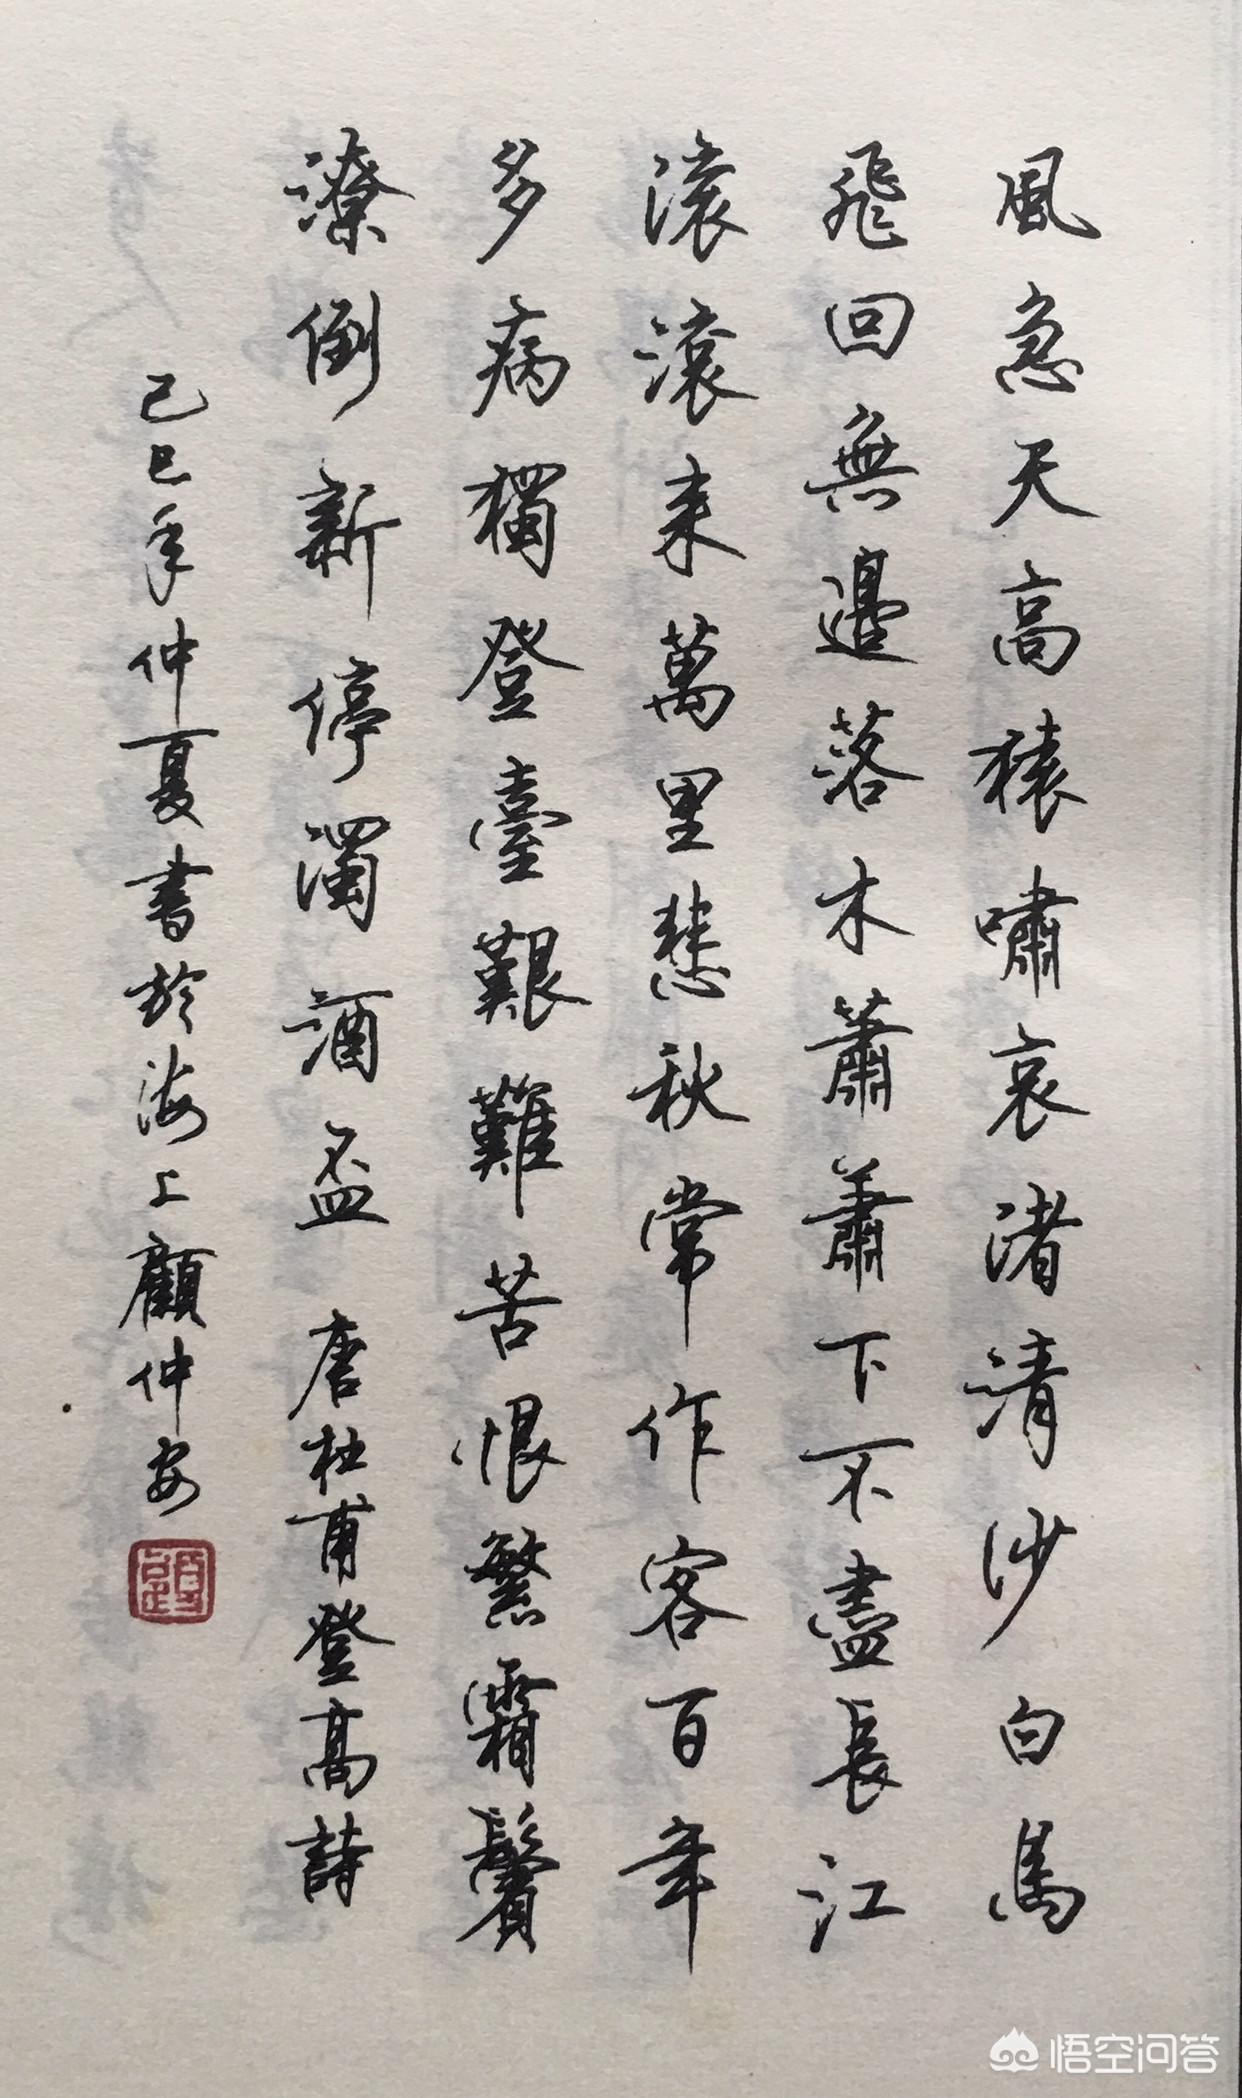 風急天高猿嘯哀渚清沙白鳥
飛回無邊落木蕭蕭下不盡長江
滾滾來萬里悲秋常作客百年
多病獨登臺艱難苦恨繁霜鬢
潦倒新停濁酒盃 唐杜甫登高詩
己巳年仲夏書於海上顧仲安
悟空问答